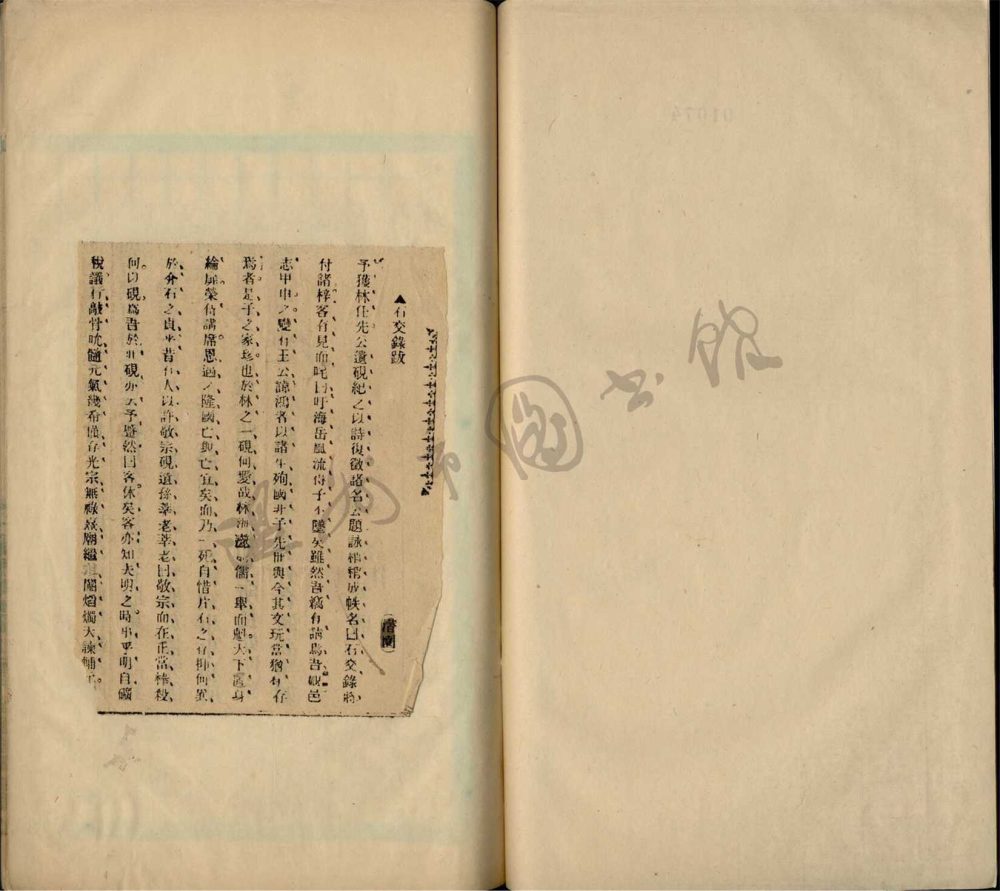 ▲石交錄跋
予獲林仕先公遺硯紀之以詩復徵諸名公題詠 成帙名曰石交錄將
付諸梓客有見而叱曰吁海岳風流得子不墜矣雖然吾竊有請焉吾觀邑
志甲申之變有王公諒鴻者以諸生殉國非子先世與今其文玩當猶有存
焉者是子之家珍也於林之一硯何愛哉林 儒一舉而魁天下置身
綸扉榮侍講席恩遇之隆國亡與亡宜矣而乃一死自惜片石之存抑何異
於介石之貞乎昔有人以許敬宗硯遺孫莘老莘老曰敬宗而在正當棒殺
何以硯爲吾於此硯亦云予蹙然曰客休矣客亦知夫明之時事乎明自礦
稅議行敲骨吮髓元氣幾希僅存光宗無祿 廟繼 閹燄燭天諫
圖书館
91074